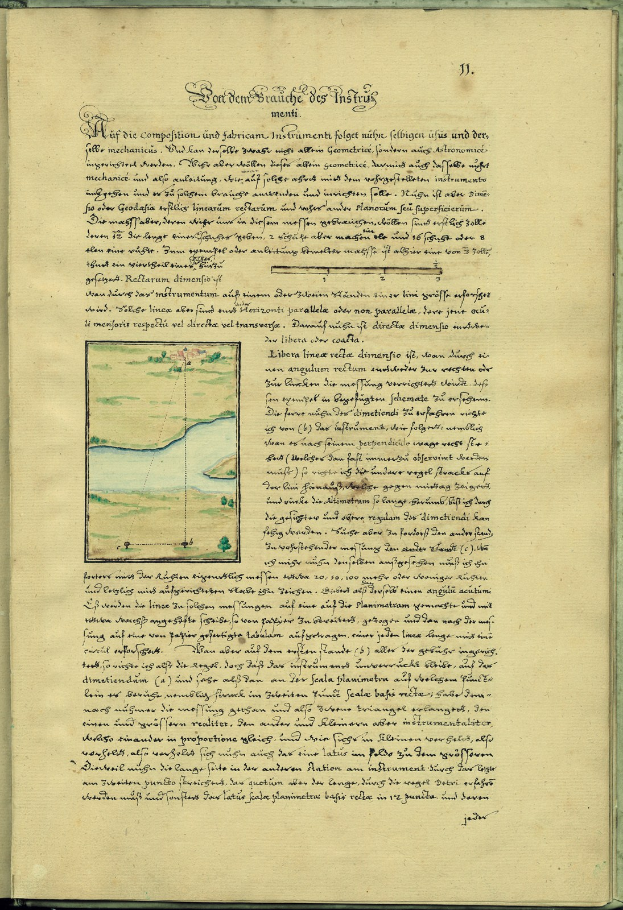 11.
Von dem Brauche des Instru
menti.
Auf die Composition und fabricam Instrumenti folget nuhn selbigen usus und der
selbe mechanicus. Und kan derselbe zwahr nicht allein Geometrice, sondern auch Astronomice
werden. Wihr aber wöllen dieser allein geometrice, darmit auch dasselbe
mechanice und also anleitung, wie auf solche ahrt mit dem vohrgestelleten instrumento
umbgehen und er zu solchem brauche anwenden und einrichten solle. Nuhn ist aber Dime
sio oder Geodæsia erstlich linearum rectarum und vohrs ander Planorum seu superficierum.
Die maass aber, deren wihr uns in diesem messen gebrauchen wöllen sind erstlich Zolle
deren 12 die lenge eines schuhes geben, 2 schuhe aber machen eine ele und 16 schuhe oder 8
elen eine ruhte. Zum exempel oder anleitung bemelter maasse ist alhier eine von 3 Zollen,
thuet ein viertheil eines schuhes
1 2 3
gesetzet. Rectarum dimensio ist
wan durch das Instrumentum auss einem oder zweien Ständen einer lini grösse erforschet
wird. Solche lineæ aber sind entweder Horizonti parallelæ oder non parallelæ, dere jene ocu-
li mensoris respectu vel directæ vel transversæ. Darauf nuhn ist directæ dimensio entwe
der libera oder coacta.
Libera lineæ rectæ dimensio ist, wan durch ei-
nen angulum rectum entweder zur rechten oder
zur lincken die messung verrichtet wird. dess
sen exempel in beygefügten schemate zu ersehen.
Die ferne nuhn des dimetiendi zu erfahren richte
ich von (b) das instrument, wie folget: nemblich
wan es nach seinem perpendiculo wage recht ste-
het (welches dan fast immerzu observiret werden
muss) so richte ich die undere regel stracks auf
der lini hinauss, welche gegen mittag zeiget
und rücke die Planimetram so lange herumb, bis ich durch
die gesichter und obere regulam das dimetiendi kan
sichtig werden. Suche aber zu fordest den ander stand,
In vohrstehender messung den ander Stand (c). Wan
ich mihr nuhn denselben ausgesehen muss ich ihn
forters mit der Ruhten eigentlich messen etwa 20, 50, 100 mehr oder weniger Ruhten
und letzlich mit aufgerichteten stabe ihn zeichen. Bildet also derselb einen anguli acutum
Es werden die lineæ in solchen messungen auf eine auf die Planimetram gemachte und mit
etwan wachss angehefte scheibe, so von papier zu bereitet, gezogen und dan nach der mes-
sung auf eine von papier gefertigte tabulam aufgetragen, einer jeden lineæ lenge mit eim
circul erforschet. Wan aber auf dem ersten stande (b) alles der gebühr ingerich
tet, so richte ich alss die Regel, doch dass das instrument unverrückt bleibe, auf das
dimetiendum (a) und sehe alss dan an der Scala planimetra auf welchem punct
lein es beruhe, nemblich struck im zweiten punct scalæ basis rectæ: habe dem-
nach nuhner die messung gethan und also zwene triangel erlanget, den
einen und grössern realiter, den ander und kleinern aber instrumentaliter,
welche einander in proportione gleich. und wie sichs in kleinen verhelt, also
verhelts, also verhelt sich nuhn auch das eine latus im felde zu dem grösseren
Dieweil nuhn die lange seite in der anderen station am instrument durch das latus
am zweiten puncto streichet, das quotum aber der lenge, durch die regel Detri erfahren
werden muss und sonsten das latus scalæ planimetræ basis rectæ in 12 puncta und deren
jeder